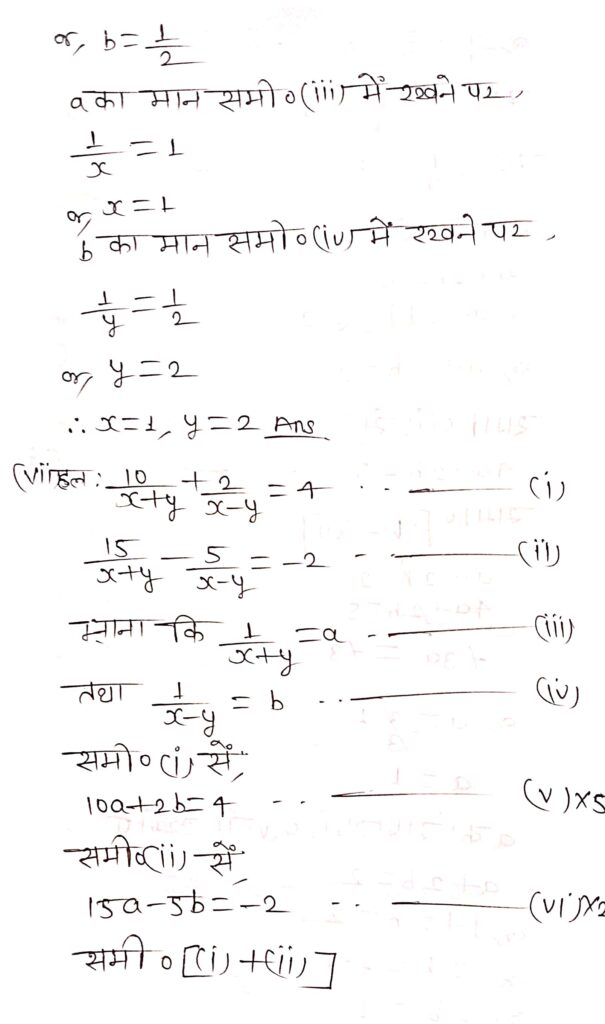 or, b = 1/2
a का मान समी०(iii) में रखने पर,
1/x = 1
or, x = 1
b का मान समी०(iv) में रखने पर,
1/y = 1/2
or, y = 2
∴ x=1, y=2 Ans
(vii) हल: 10/x+y + 2/x-y = 4 .. —— (i)
15/x+y - 5/x-y = -2 .. —— (ii)
माना कि 1/x+y = a .. —— (iii)
तथा 1/x-y = b .. —— (iv)
समी०(i) सें,
10a+2b=4 .. —— (v)×5
समी०(ii) सें,
15a-5b=-2 .. —— (vi)×2
समी०[(i)+(ii)]